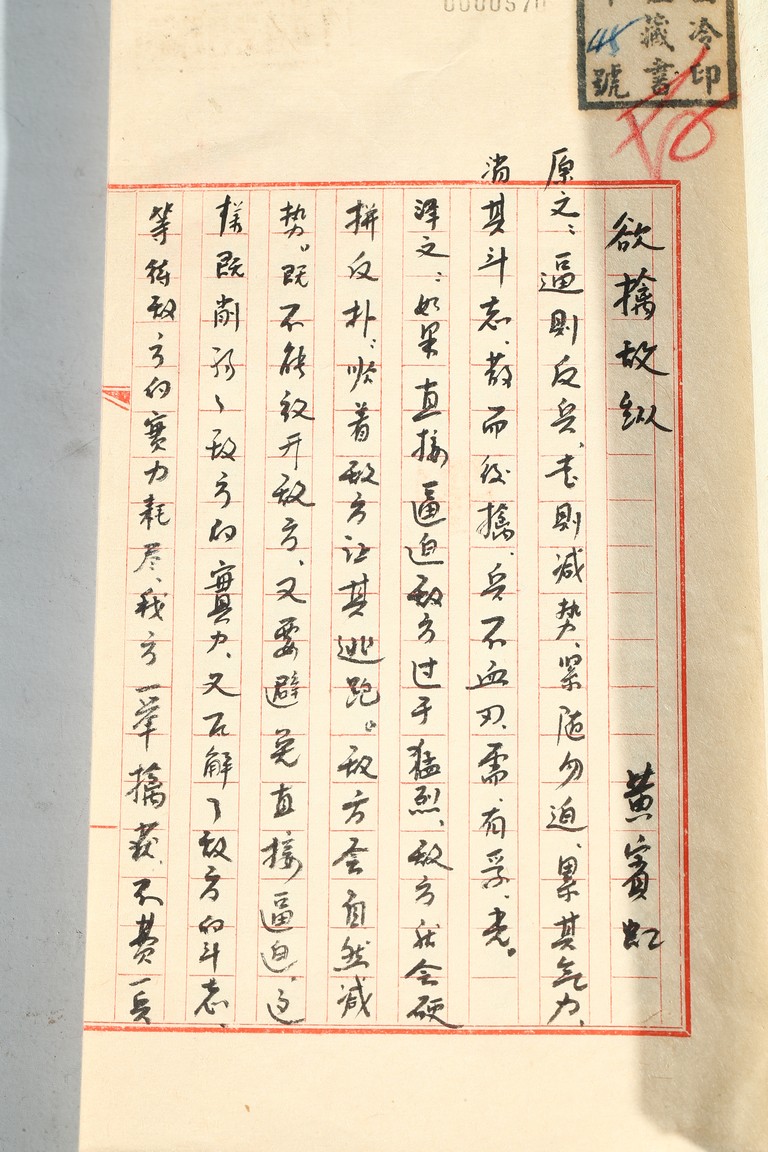 0000570
冷印
藏書
號
欲擒故纵 黄賓虹
原文：逼则反兵、走则减势、紧随勿迫、累其气力、
消其斗志、散而后擒、兵不血刃、需、有孚、光。
译文：如果直接逼迫敌方过于猛烈、敌方就会硬
拼反扑；顺着敌方让其逃跑。敌方会自然减
势。既不能放开敌方、又要避免直接逼迫、这
样既削弱了敌方的實力、又瓦解了敌方的斗志、
等待敌方的實力耗尽、我方一举擒获、不费一兵